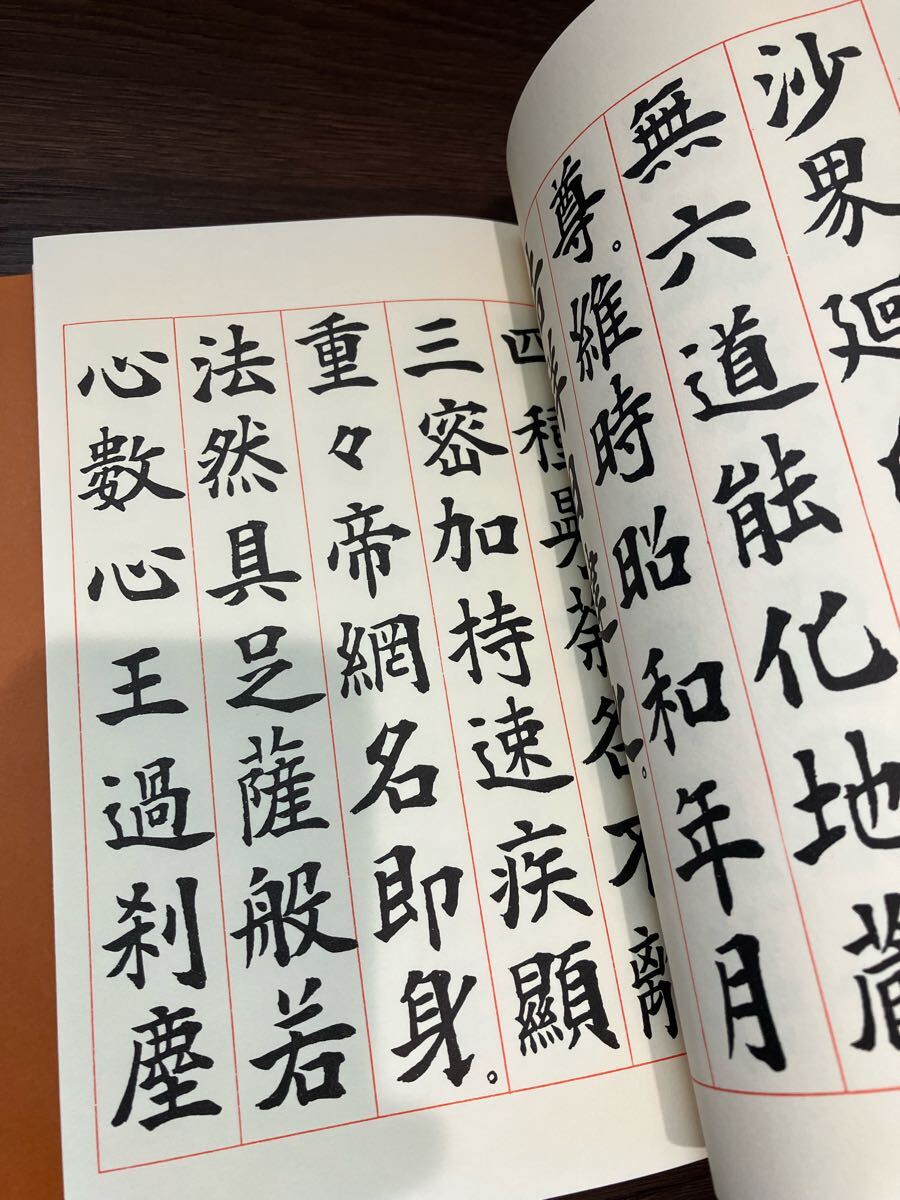 沙界廻
無六道能化地蔵
尊。維時昭和年月
四種曼荼各不離
三密加持速疾顯
重々帝網名即身。
法然具足薩般若
心數心王過刹塵